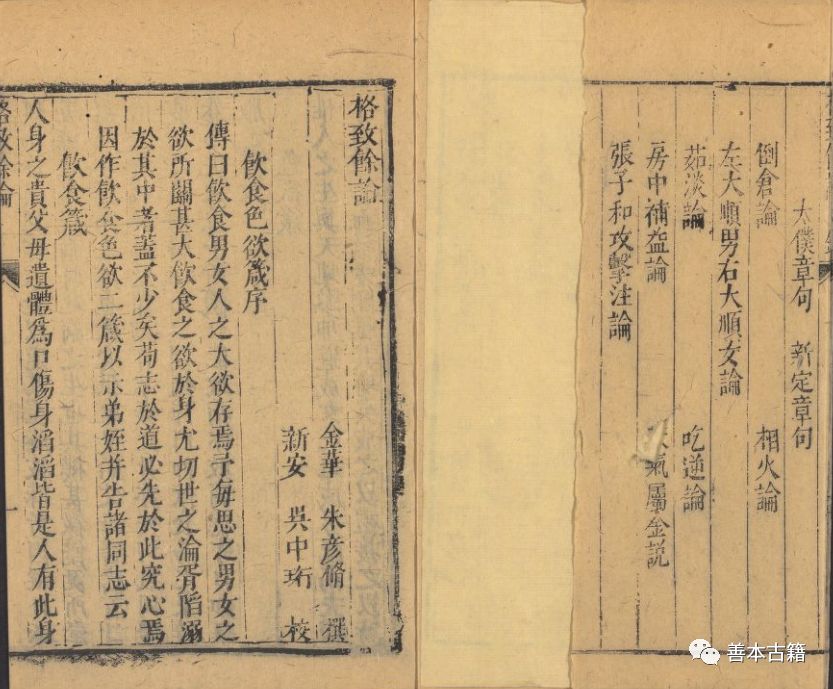 太僕章句　新定章句
倒倉論　相火論
左大順男右大順女論
茹淡論　吃逆論
房中補益論　氣屬金説
張子和攻擊注論
格致餘論
金華　朱彦脩　撰
新安　吳中珩　校
飲食色欲箴序
傳曰飲食男女人之大欲存焉予每思之男女之
欲所關甚大飲食之欲於身尤切世之淪胥陷溺
於其中者蓋不少矣苟志於道必先於此究心焉
因作飲食色欲二箴以示弟姪并告諸同志云
飲食箴
人身之貴父母遺體爲口傷身滔滔皆是人有此身
格致餘論
一
善本古籍